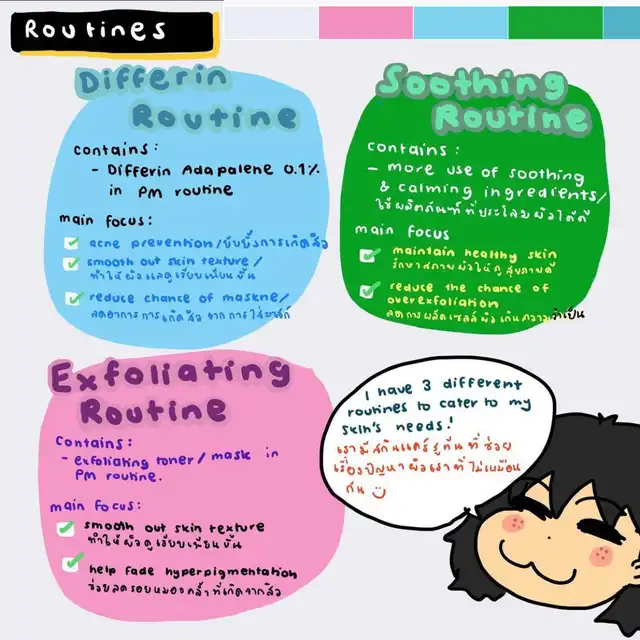 Routines
Differin
Routine
contains:
- Differin Adapalene 0.1%
in PM routine
main focus:
acne prevention/ยับยั้งการเกิดสิว
smooth out skin texture/
ทำให้ผิวแลดูเรียบเนียนขึ้น
reduce chance of maskne/
ลดอาการการเกิดสิวจากการใส่มาสก์
Soothing
Routine
contains:
- more use of soothing
& calming ingredients/
ใช้ผลิตภัณฑ์ที่ประโลมผิวได้ดี
main focus
maintain healthy skin
รักษาสภาพผิวให้ดูสุขภาพดี
reduce the chance of
overexfoliation
ลดการผลัดเซลล์ผิวเกินความจำเป็น
Exfoliating
Routine
contains:
- exfoliating toner/mask in
PM routine.
main focus:
smooth out skin texture
ทำให้ผิวดูเรียบเนียนขึ้น
help fade hyperpigmentation
ช่วยลดรอยหมองคล้ำที่เกิดจากสิว
I have 3 different
routines to cater to my
skin's needs!
เรามีสกินแคร์รูทีนที่ช่วย
เรื่องปัญหาผิวเราที่ไม่เหมือน
กัน